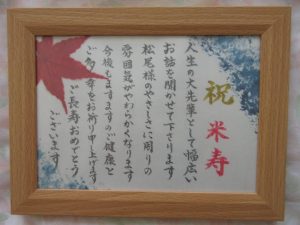 祝 米寿
人生の大先輩として幅広い
お話を聞かせて下さります
松尾様のやさしさに周りの
雰囲気がやわらかくなります
今後もますますのご健康と
ご多幸をお祈り申し上げます
ご長寿おめでとう
ございます